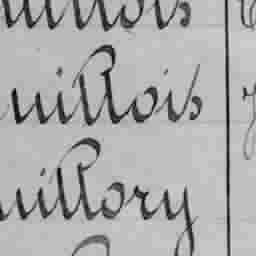 uillois
uillois
uillory